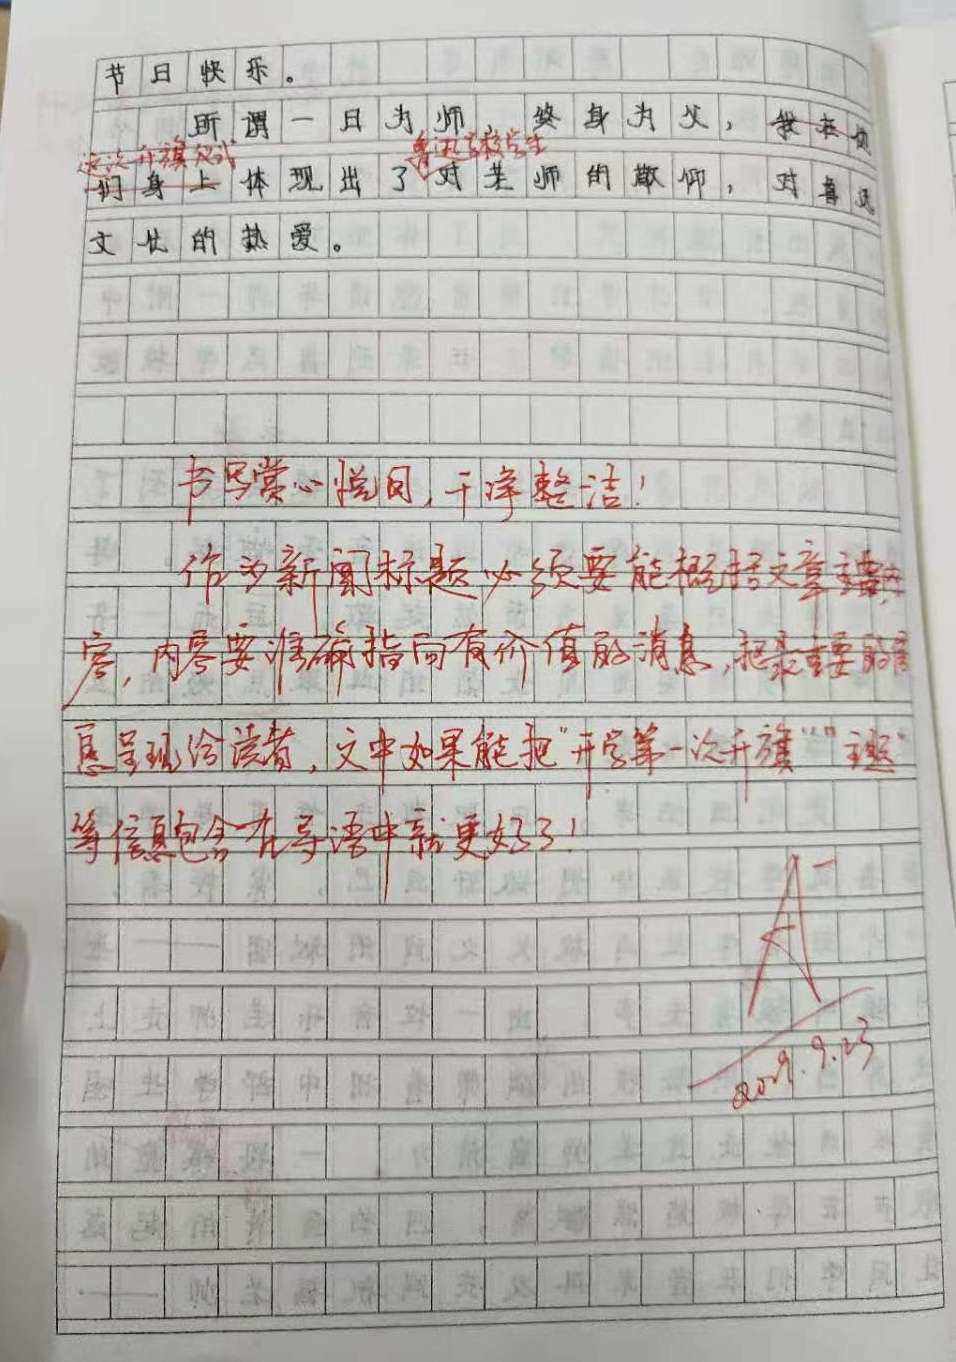 节日快乐。
所谓一日为师，终身为父，我在他
这次升旗仪式 鲁迅高校学生
们身上体现出了对老师的敬仰，对鲁迅
文化的热爱。
书写赏心悦目，干净整洁！
作为新闻标题必须要能概括文章主要内
容，内容要准确指向有价值的消息，把最重要的信
息呈现给读者，文中如果能把"开学第一次升旗""主题"
等信息包含在导语中就更好了！
A-
9.23